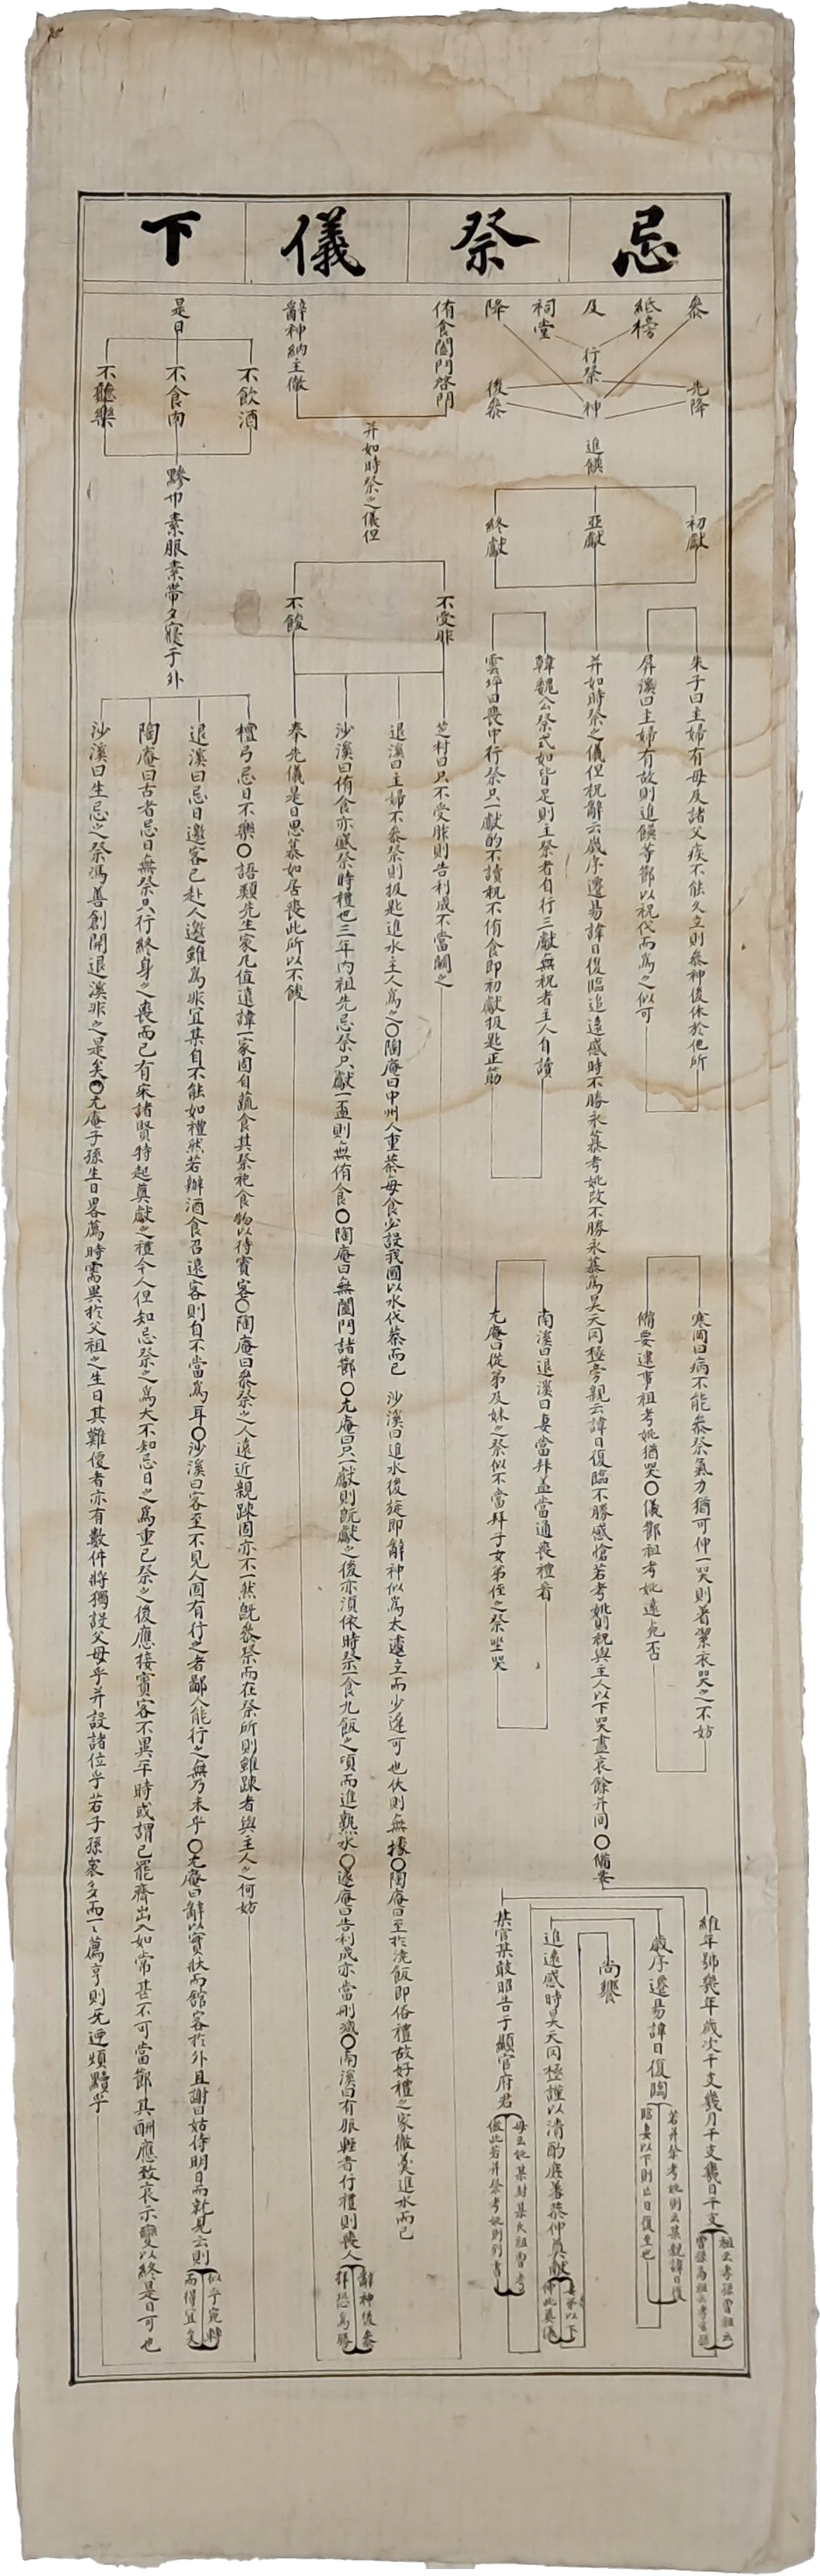 忌祭儀下
參
紙榜
及
祠堂
降
行祭
先降
神
後參
進饌
初獻
亞獻
終獻
朱子曰主婦有母及諸父疾不能久立則參神後休於他所
屛溪曰主婦有故則進饌等節以祝代而爲之似可
并如時祭之儀但祝辭云歲序遷易諱日復臨追遠感時不勝永慕考妣改不勝永慕爲昊天罔極旁親云諱日復臨不勝感愴若考妣則祝與主人以下哭盡哀餘并同○備要
韓魏公祭式如皆足則主祭者自行三獻無祝者主人自讀
雲坪曰喪中行祭只一獻酌不讀祝不侑食卽初獻扱匙正筯
寒岡曰病不能參祭氣力猶可伸一哭則着潔衣哭之不妨
備要逮事祖考妣猶哭○儀節祖考妣遠死否
南溪曰退溪曰妻當拜盖當通喪禮看
尤庵曰從弟及妹之祭似不當拜子女弟侄之祭坐哭
維年號幾年歲次干支幾月干支幾日干支
祖云孝孫曾祖云
曾孫高祖云孝玄孫
歲序遷易諱日復臨
若并祭考妣則云某親諱日復
臨妻以下則亡日復至也
尙饗
追遠感時昊天罔極謹以淸酌庶羞恭伸奠獻
妻弟以下
伸此奠儀
某官某敢昭告于顯官府君
母云妣某封某氏祖曾考
倣此若并祭考妣則列書
侑食闔門啓門
辭神納主徹
并如時祭之儀但
不受胙
不餕
芝村曰只不受胙則告利成不當闕之
退溪曰主婦不參祭則扱匙進水主人爲之○陶庵曰中州人重茶每食必設我國以水代茶而已 沙溪曰進水後旋卽辭神似爲太遽立而少遲可也伏則無據○陶庵曰至於澆飯卽俗禮故好禮之家徹羹進水而已
沙溪曰侑食亦盛祭時禮也三年內祖先忌祭只獻一盃則無侑食○陶庵曰無闔門諸節○尤庵曰只一獻則旣獻之後亦須依時祭一食九飯之頃而進熟水○遂庵曰告利成亦當刪減○南溪曰有服輕者行禮則喪人
辭神後參
拜恐爲勝
奉先儀是日思慕如居喪此所以不餕
是日
不飮酒
不食肉
不聽樂
黲巾素服素帶夕寢于外
檀弓忌日不樂○語類先生家凡値遠諱一家固自蔬食其祭祀食物以待賓客○陶庵曰參祭之人遠近親踈固亦不一然旣參祭而在祭所則雖踈者與主人之何妨
退溪曰忌日邀客已赴人邀雖爲非宜某自不能如禮然若辦酒食召遠客則自不當爲耳○沙溪曰客至不見人固有行之者鄙人能行之無乃未乎○尤庵曰辭以實狀而舘客於外且謝曰姑待明日而就見云則
似乎宛轉
而得宜矣
陶庵曰古者忌日無祭只行終身之喪而已有宋諸賢特起奠獻之禮今人但知忌祭之爲大不知忌日之爲重已祭之後應接賓客不異平時或謂已罷齋出入如常甚不可當節其酬應致哀示變以終是日可也
沙溪曰生忌之祭馮善創開退溪非之是矣○尤庵子孫生日略薦時需異於父祖之生日其難便者亦有數件將獨設父母乎并設諸位乎若子孫衆多而一一薦亨則无迺煩黷乎